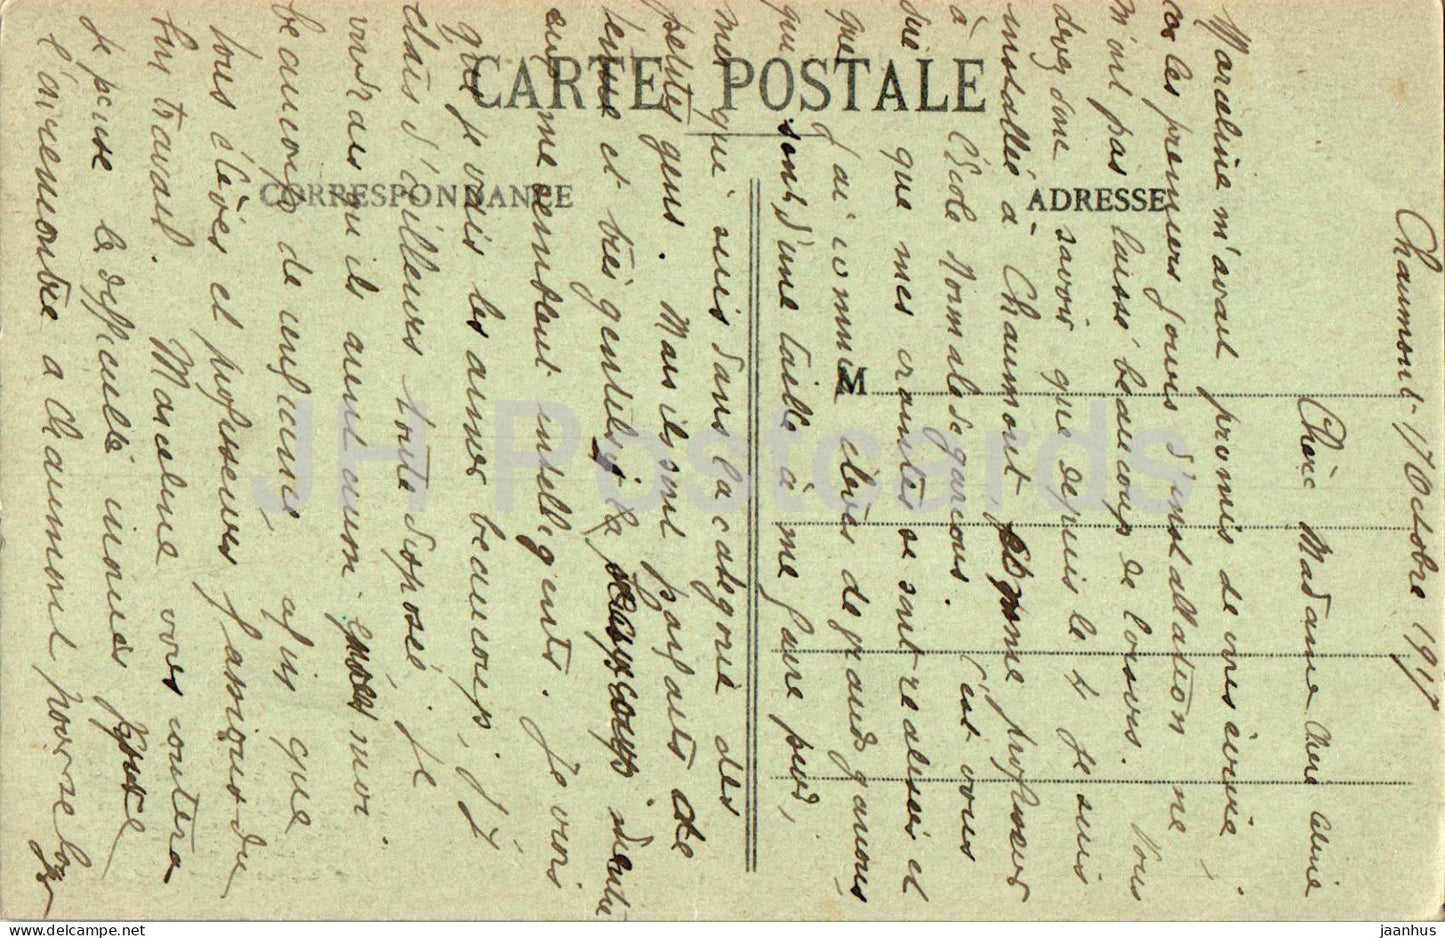 CARTE POSTALE
CORRESPONDANCE
ADRESSE
M
Chaumont - 17 Octobre 1917
Chère Madame Chère Amie
Marceline m'avait promis de vous écrire
car les premiers jours d'installation ne
m'ont pas laissé beaucoup de loisirs. Vous
devez donc savoir que depuis le 1 je suis
installée à Chaumont, comme professeur
à l'École Normale de garçons. C'est vous
dire que mes craintes se sont réalisées et
que j'ai comme élèves de grands garçons,
qui sont d'une taille à me faire peur,
moi qui suis dans la catégorie des
petites gens. Mais ils sont parfaits de
tenue et très gentils, beaucoup d'entre
eux me semblent intelligents. Je crois
que je vais les aimer beaucoup, j'y
étais d'ailleurs toute disposée. Je
voudrais qu'ils aient aussi moi
beaucoup de confiance, afin que
tous élèves et professeurs fassions du
bon travail. Marceline vous contera
je pense la difficulté inouïe que
l'on rencontre à Chaumont pour se loger
JH Postcards
www.delcampe.net
jaanhus